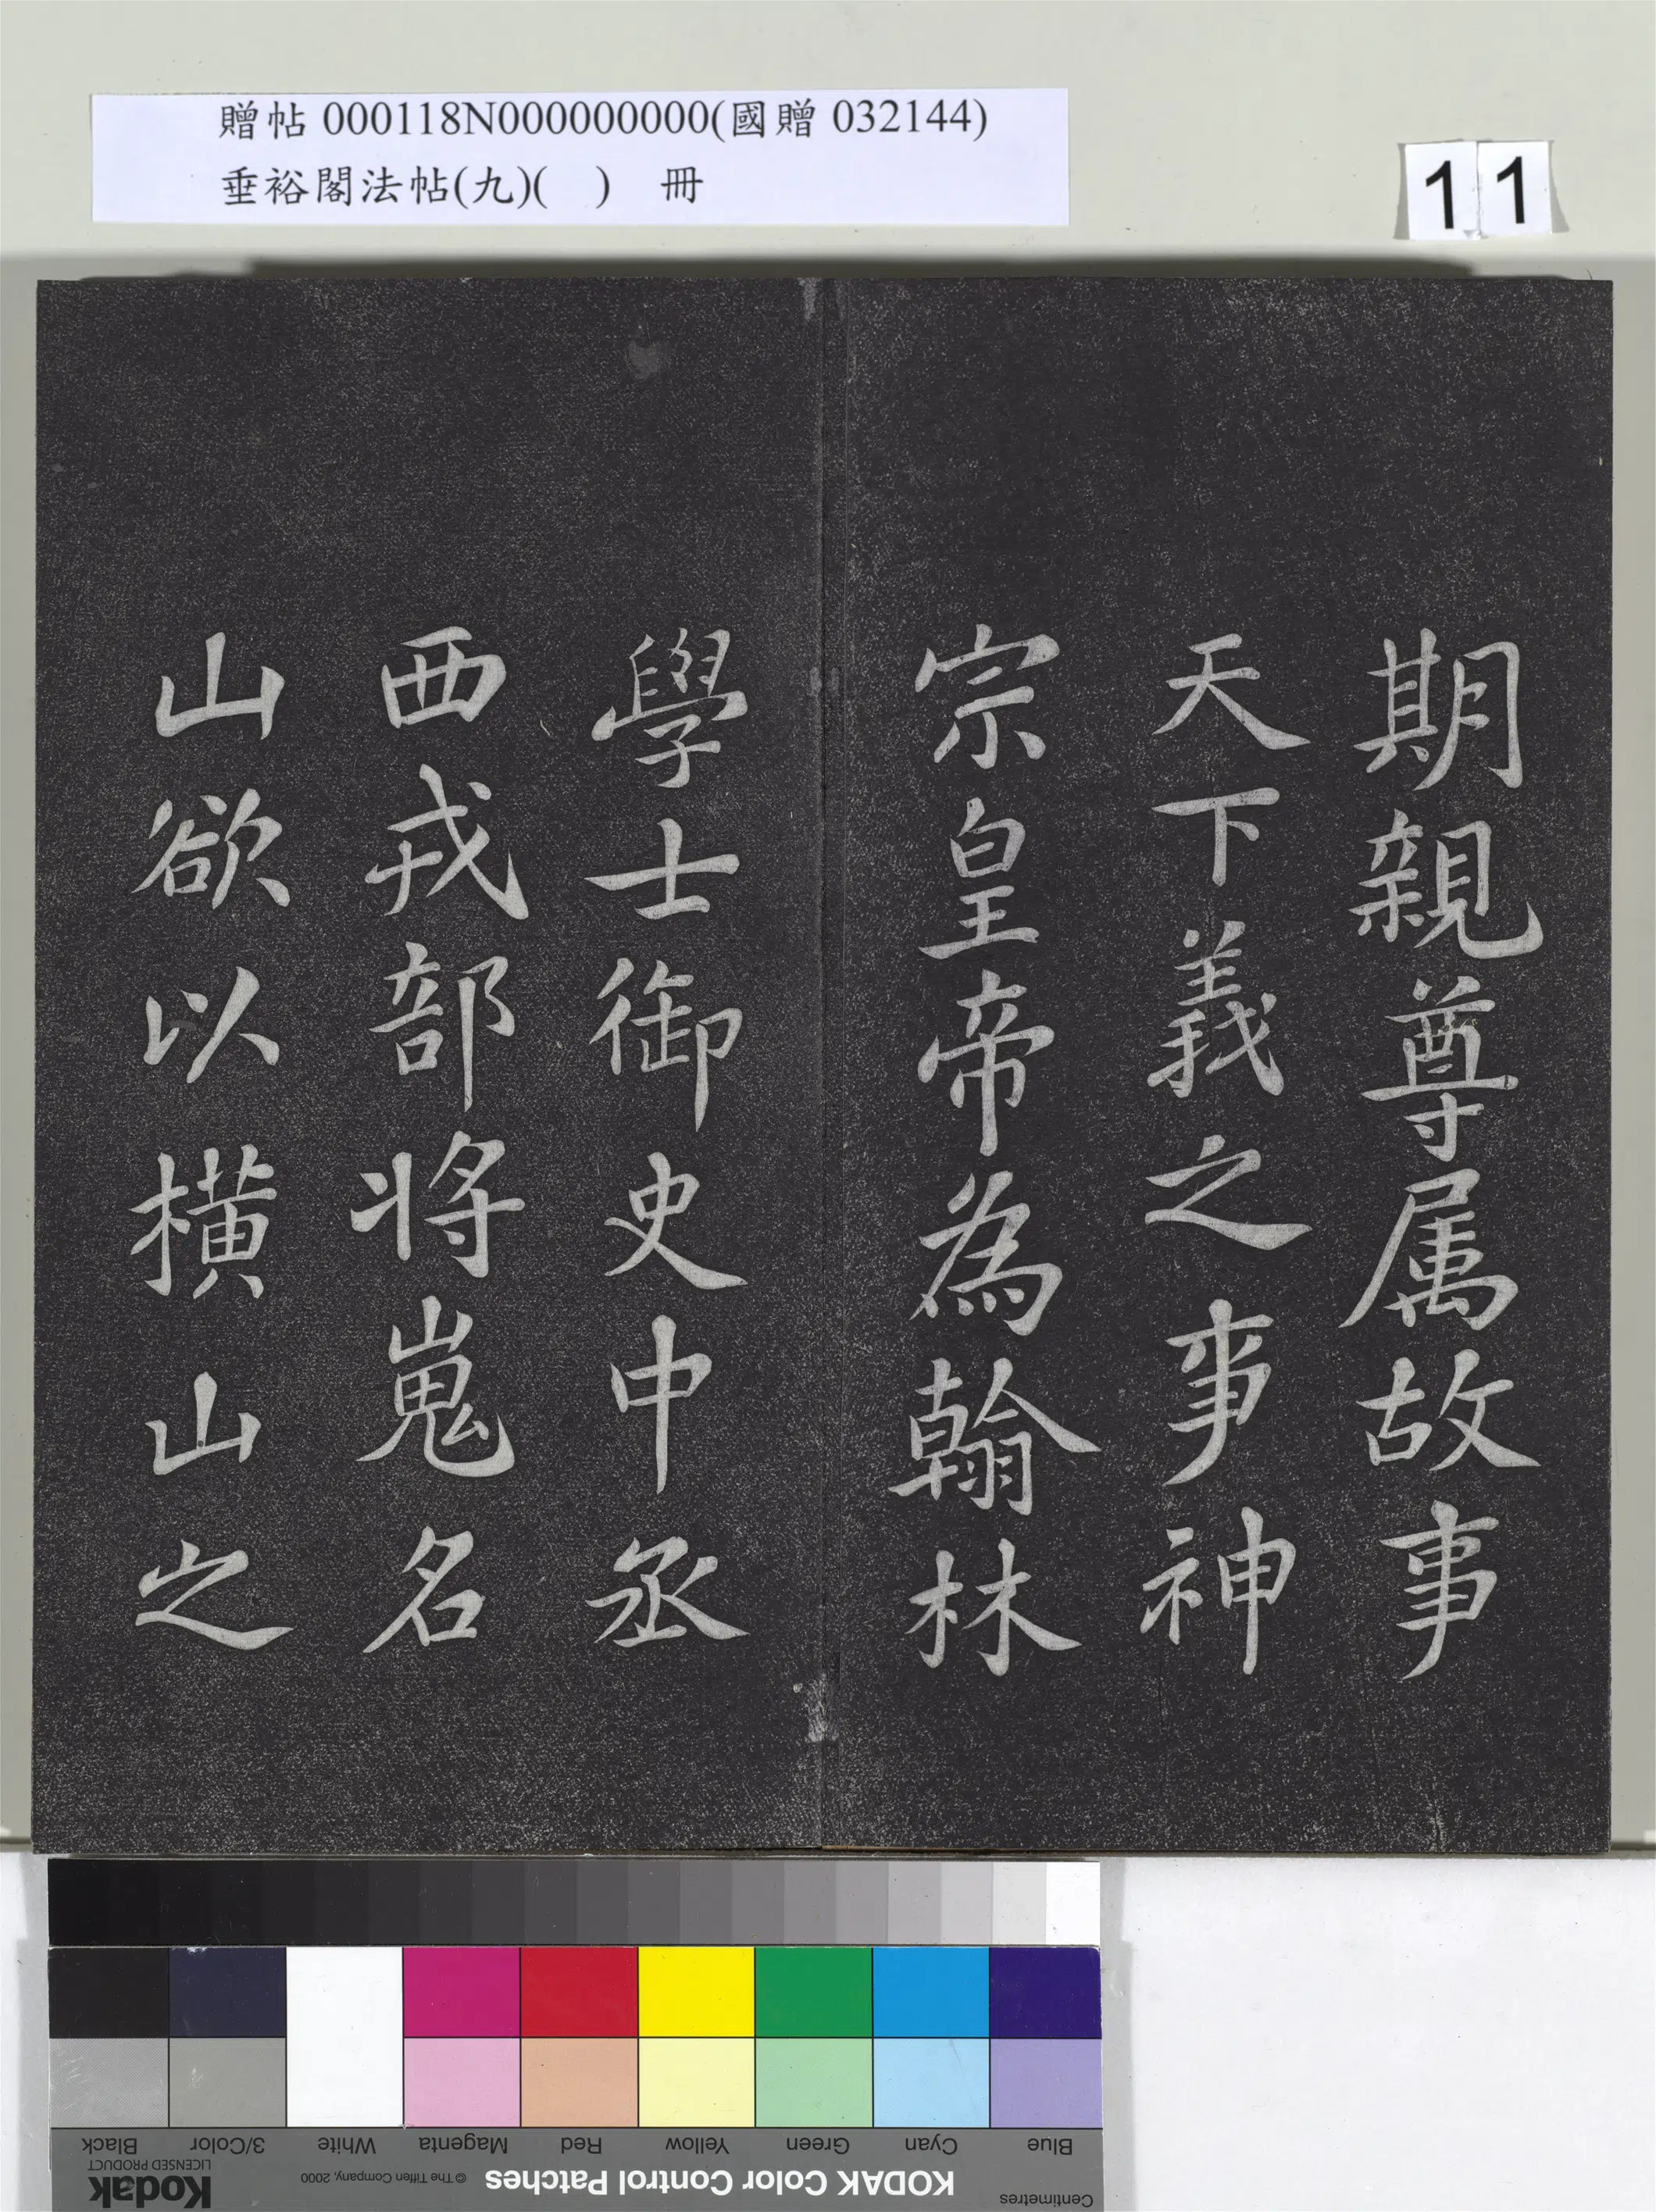 贈帖 000118N000000000(國贈 032144)
垂裕閣法帖(九)( ) 冊
11
期親尊属故事
天下義之事神
宗皇帝為翰林
學士御史中丞
西戎部将嵬名
山欲以橫山之
Black
3/Color
White
Magenta
Red
Yellow
Green
Cyan
Blue
Kodak
LICENSED PRODUCT
© The Tiffen Company, 2000
KODAK Color Control Patches
Centimetres